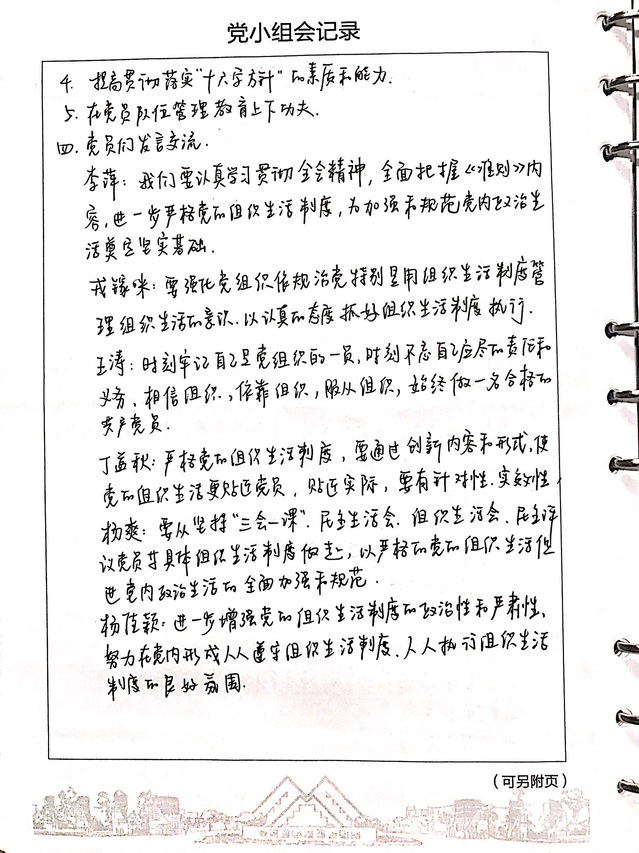 党小组会记录
4. 提高贯彻落实“十六字方针”的素质和能力.
5. 在党员队伍管理教育上下功夫.
四. 党员们发言交流.
李萍: 我们要认真学习贯彻全会精神, 全面把握《准则》内
容, 进一步严格党的组织生活制度, 为加强和规范党内政治生
活奠定坚实基础.
要强化党组织依规治党特别是用组织生活制度管
理组织生活的意识. 以认真的态度抓好组织生活制度执行.
王涛: 时刻牢记自己是党组织的一员, 时刻不忘自己应尽的责任和
义务、相信组织, 依靠组织, 服从组织, 始终做一名合格的
共产党员.
丁益秋: 严格党的组织生活制度, 要通过创新内容和形式, 使
党的组织生活更贴近党员, 贴近实际, 要有针对性. 实效性,
杨爽: 要从坚持“三会一课”. 民主生活会. 组织生活会、民主评
议党员等具体组织生活制度做起, 以严格的党的组织生活促
进党内政治生活的全面加强和规范.
杨佳颖: 进一步增强党的组织生活制度的政治性和严肃性.
努力在党内形成人人遵守组织生活制度、人人执行组织生活
制度的良好氛围.
（可另附页）